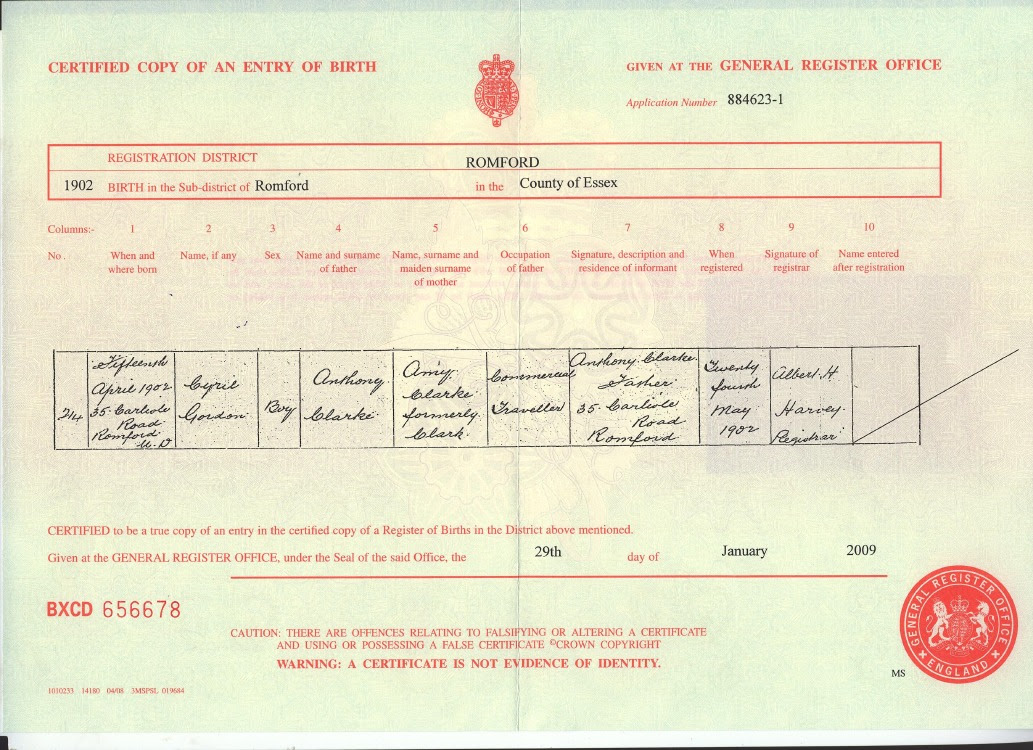 CERTIFIED COPY OF AN ENTRY OF BIRTH
GIVEN AT THE GENERAL REGISTER OFFICE
Application Number 884623-1
REGISTRATION DISTRICT ROMFORD
1902 BIRTH in the Sub-district of Romford in the County of Essex
Columns:- 1 2 3 4 5 6 7 8 9 10
No. When and where born Name, if any Sex Name and surname of father Name, surname and maiden surname of mother Occupation of father Signature, description and residence of informant When registered Signature of registrar Name entered after registration
214
Fifteenth
April 1902
35 Carlisle
Road
Romford
U.D
Cyril
Gordon
Boy
Anthony
Clarke
Amy
Clarke
formerly
Clark
Commercial
Traveller
Anthony Clarke
Father
35 Carlisle
Road
Romford
Twenty
fourth
May
1902
Albert H
Harvey
Registrar
CERTIFIED to be a true copy of an entry in the certified copy of a Register of Births in the District above mentioned.
Given at the GENERAL REGISTER OFFICE, under the Seal of the said Office, the 29th day of January 2009
BXCD 656678
CAUTION: THERE ARE OFFENCES RELATING TO FALSIFYING OR ALTERING A CERTIFICATE
AND USING OR POSSESSING A FALSE CERTIFICATE ©CROWN COPYRIGHT
WARNING: A CERTIFICATE IS NOT EVIDENCE OF IDENTITY.
GENERAL REGISTER OFFICE
ENGLAND
MS
1010233 14180 04/08 3MSPSL 019684